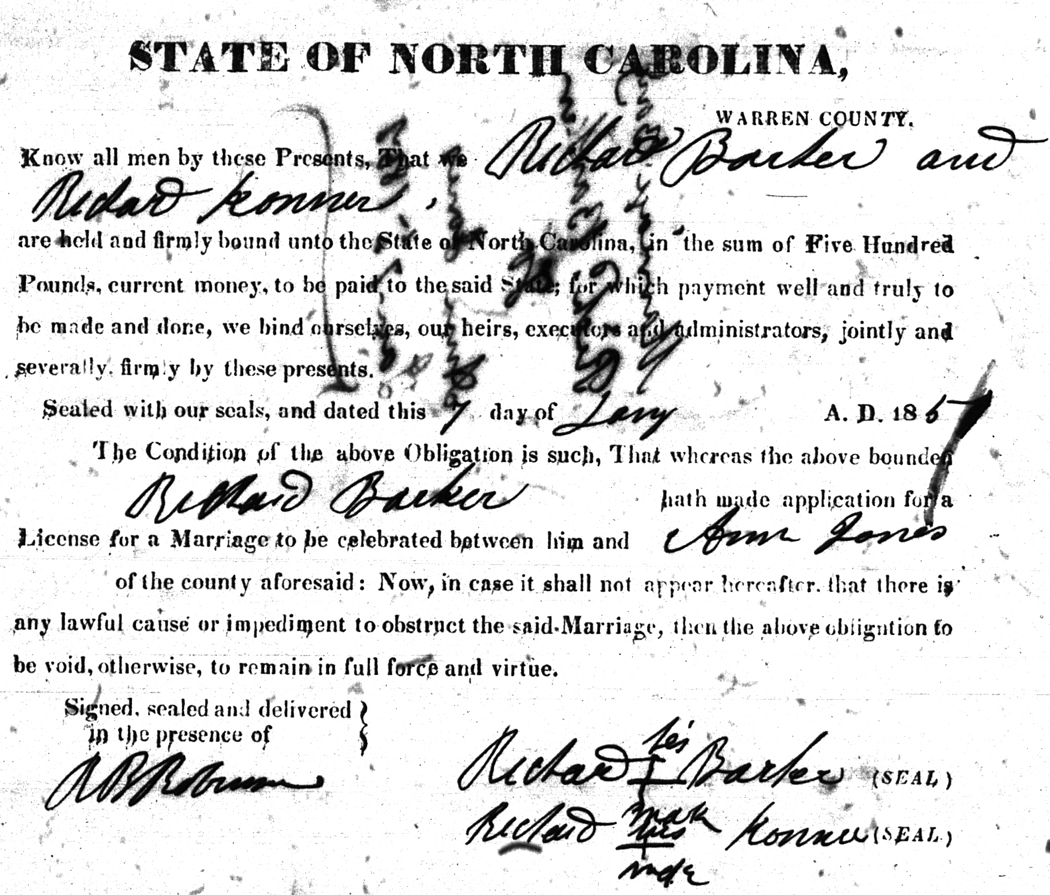 STATE OF NORTH CAROLINA,
WARREN COUNTY.
Know all men by these Presents, That we Richard Barker and
Richard Konner,
are held and firmly bound unto the State of North Carolina, in the sum of Five Hundred
Pounds, current money, to be paid to the said State; for which payment well and truly to
be made and done, we bind ourselves, our heirs, executors and administrators, jointly and
severally, firmly by these presents.
Sealed with our seals, and dated this 7 day of Jany A. D. 185
The Condition of the above Obligation is such, That whereas the above bounden
Richard Barker hath made application for a
License for a Marriage to be celebrated between him and Ann Jones
of the county aforesaid: Now, in case it shall not appear hereafter, that there is
any lawful cause or impediment to obstruct the said Marriage, then the above obligation to
be void, otherwise, to remain in full force and virtue.
Signed, sealed and delivered
in the presence of
his
Richard Barker (SEAL)
mark
his
Richard (SEAL)
mark